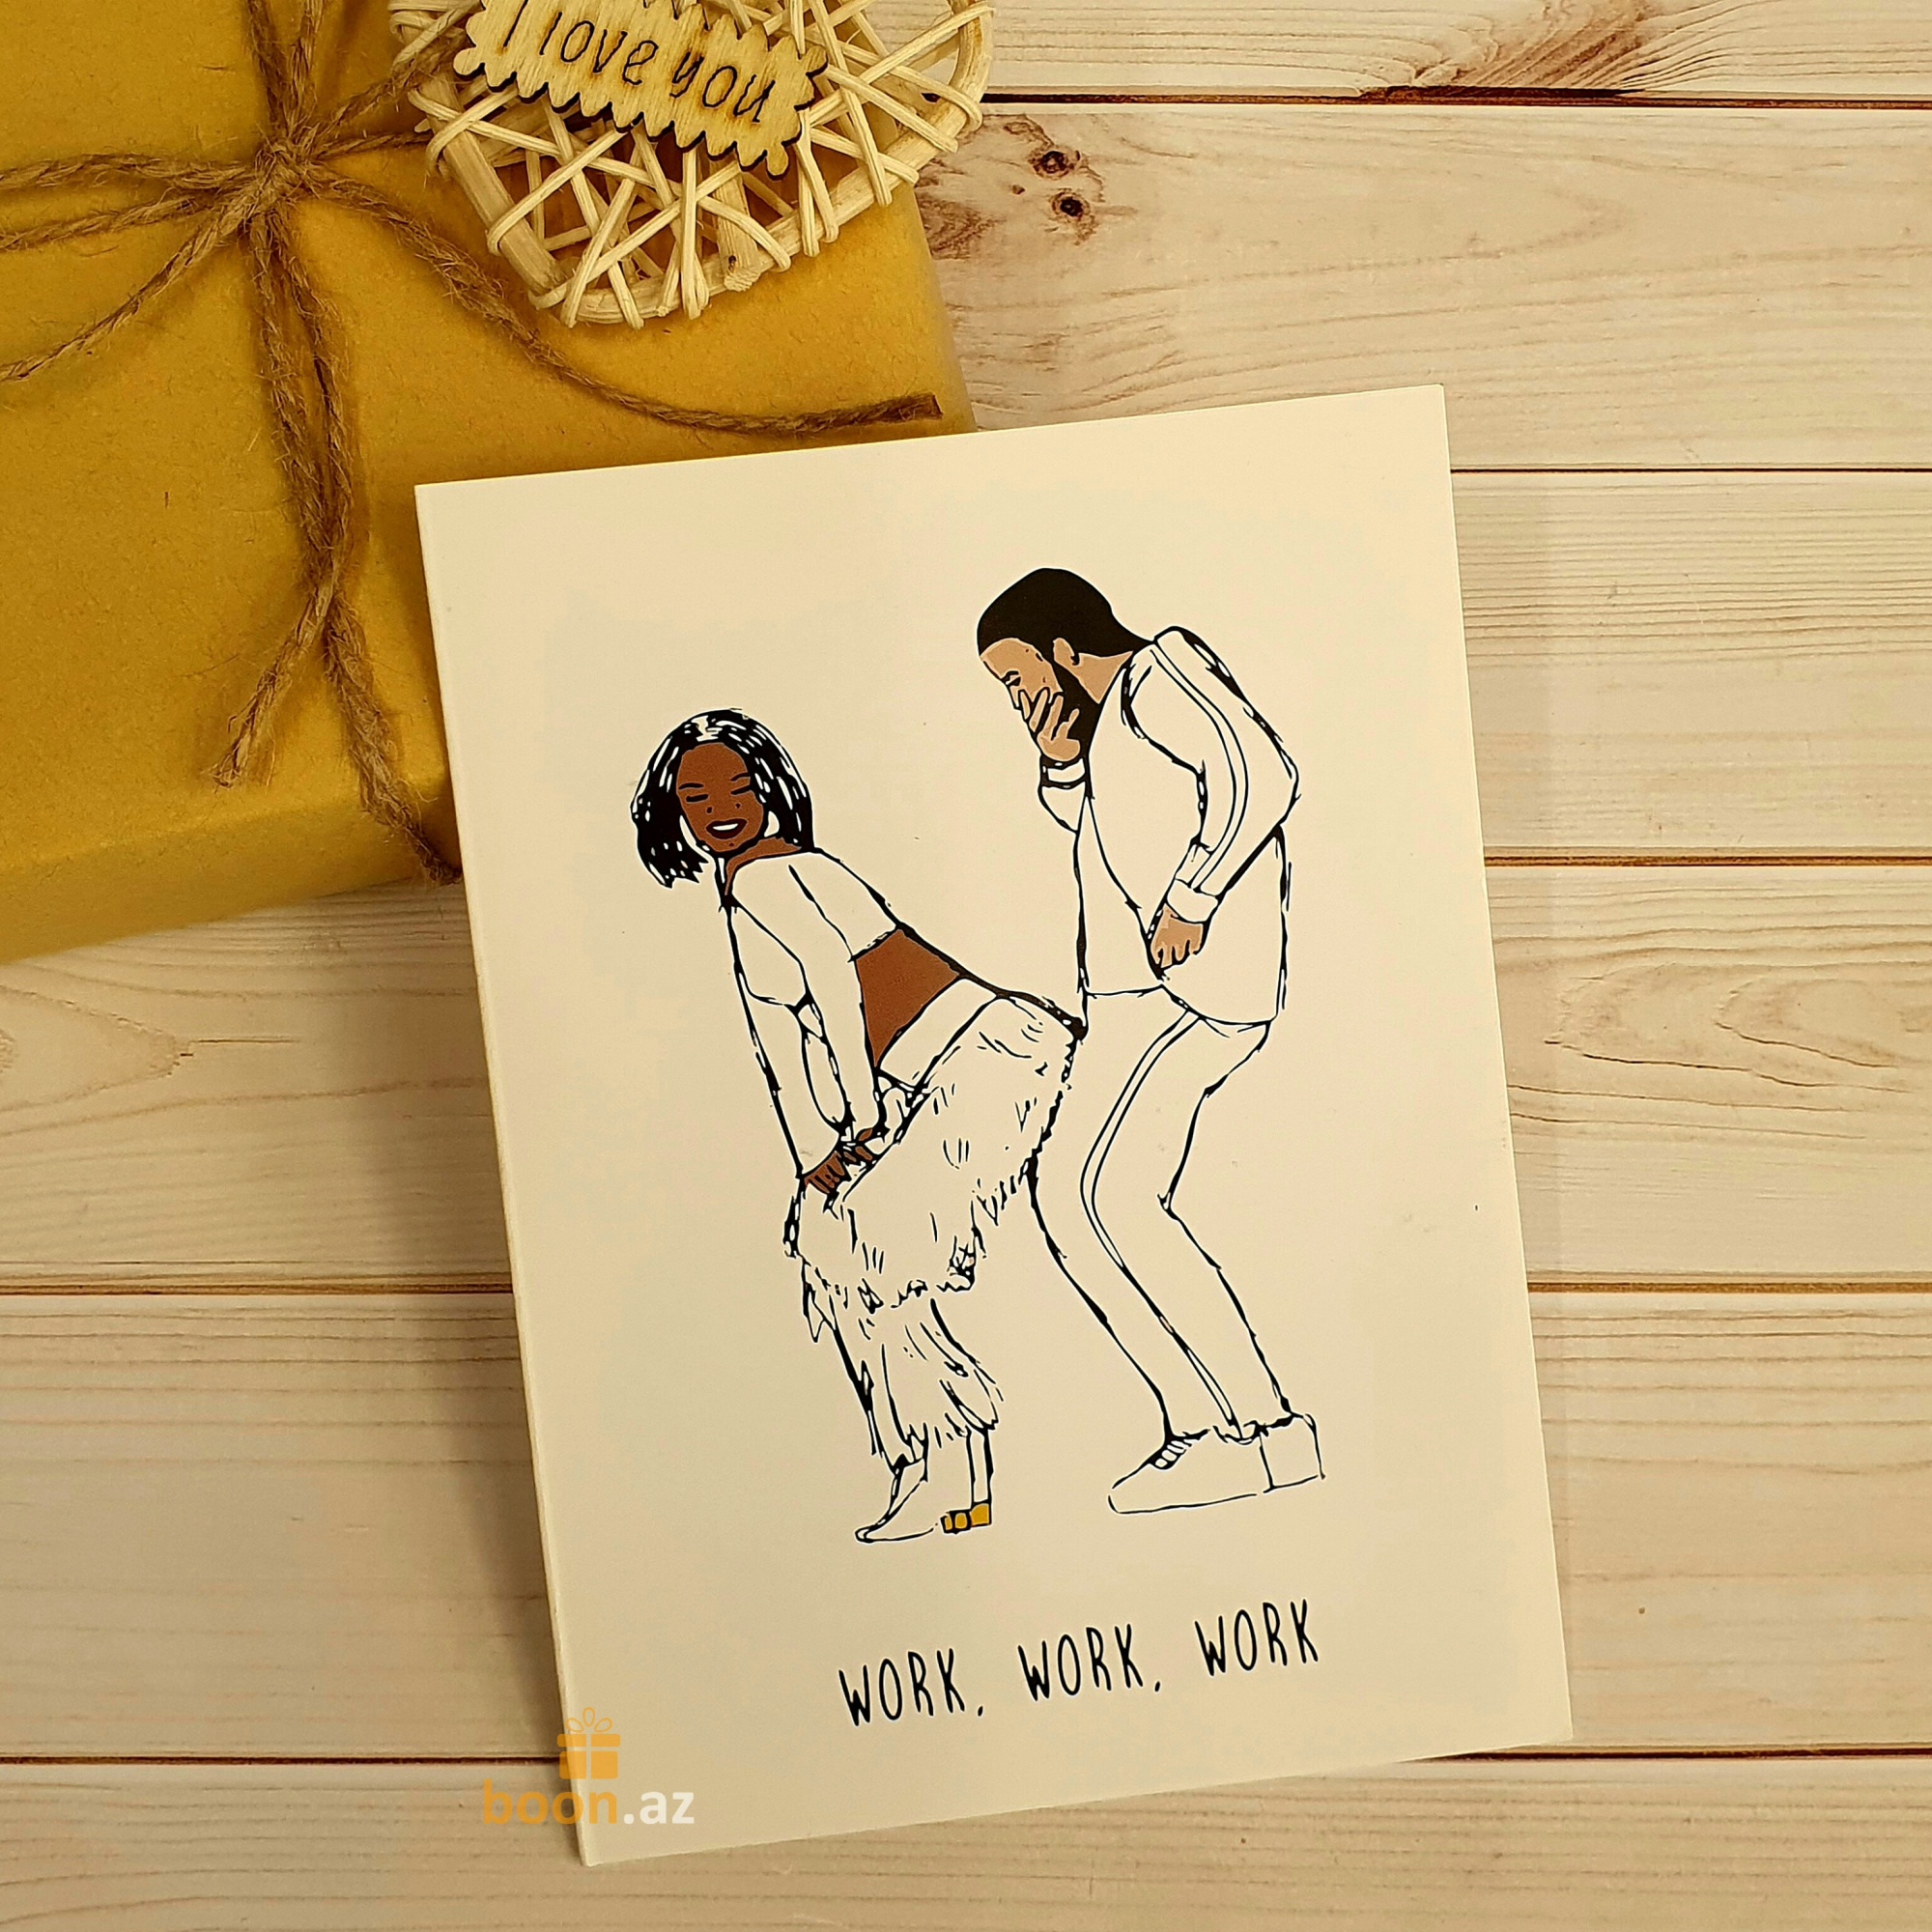 I love you
WORK, WORK, WORK
boon.az